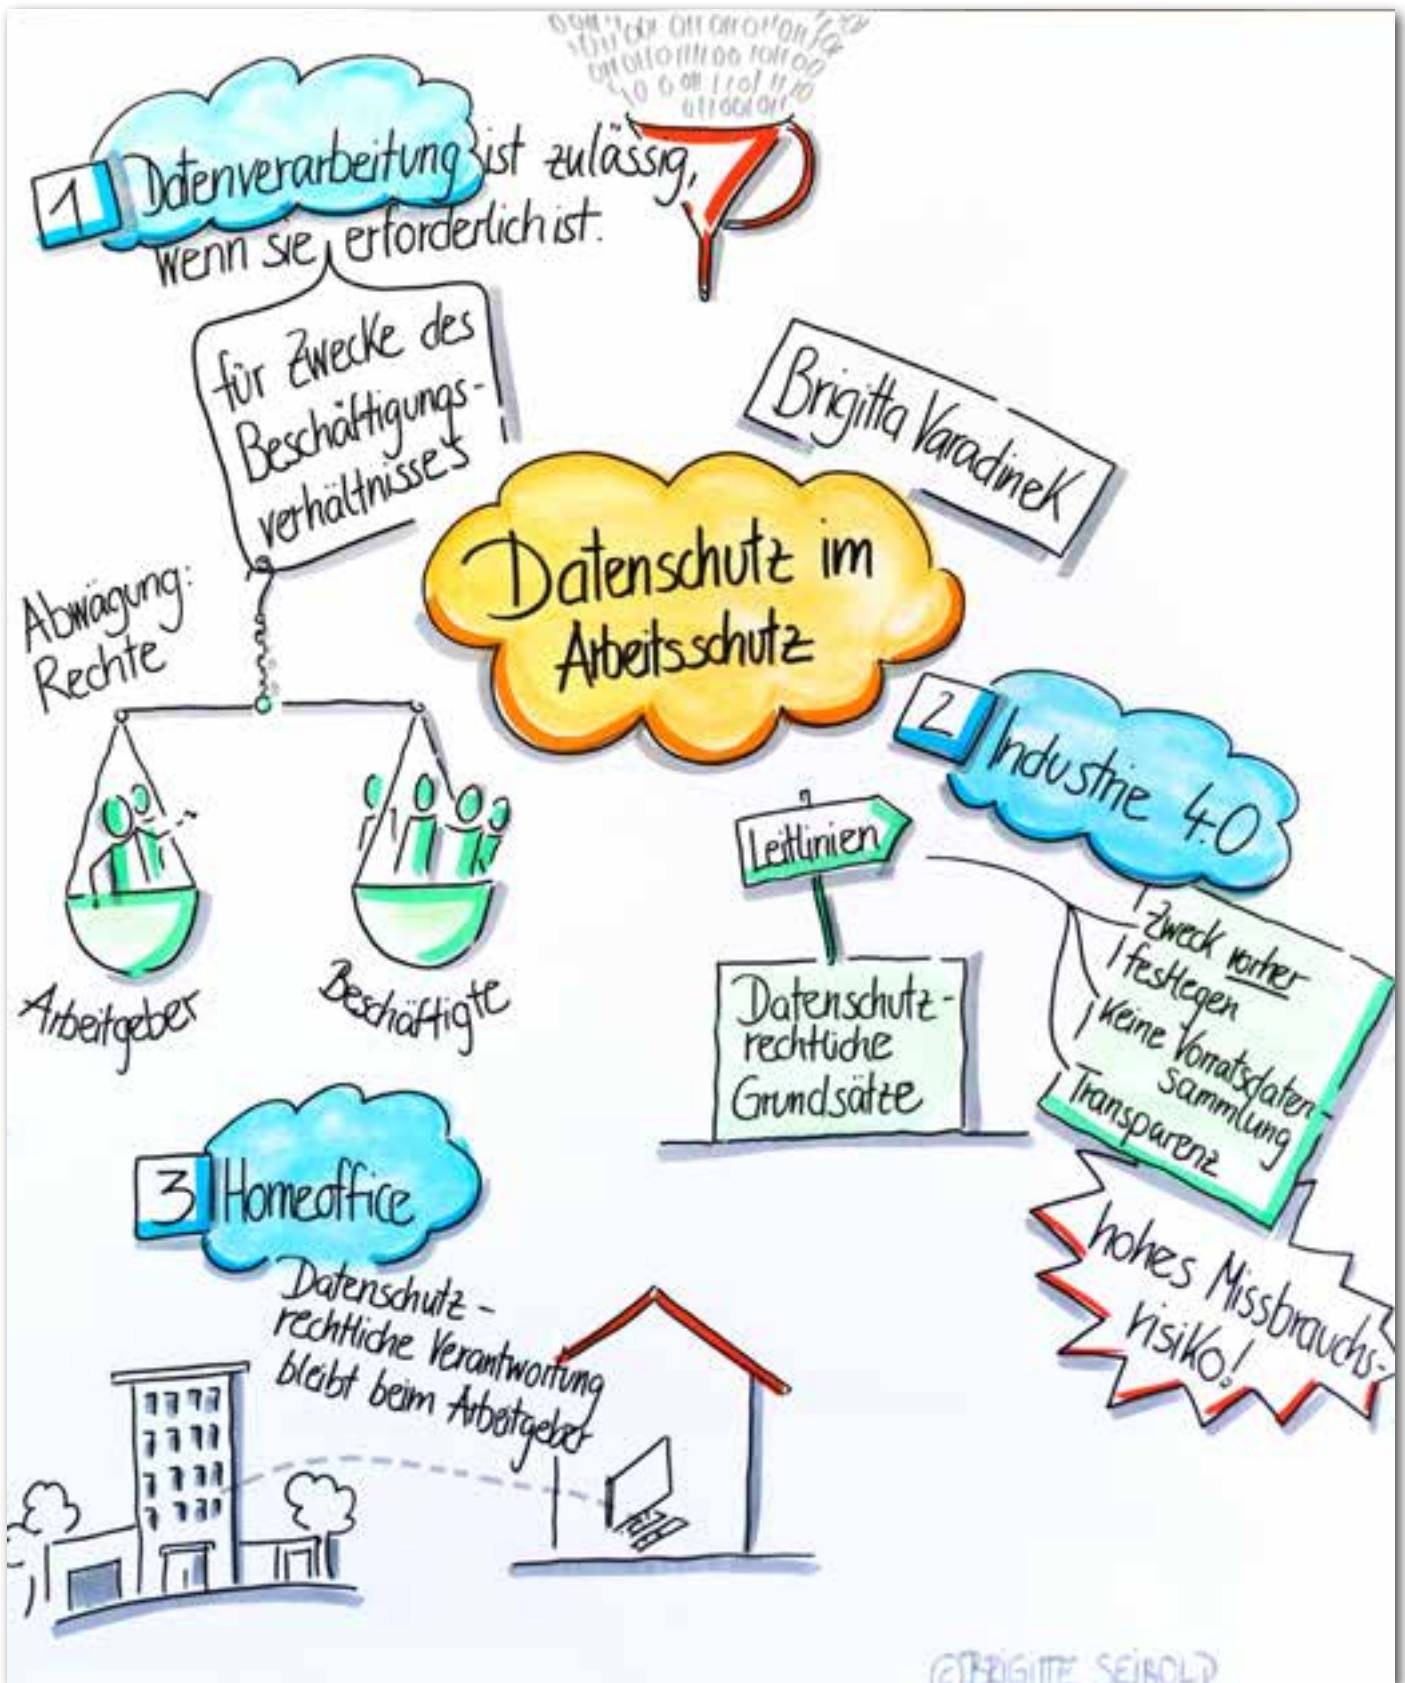 1 Datenverarbeitung ist zulässig,
wenn sie erforderlich ist.
für Zwecke des
Beschäftigungs-
verhältnisses
Brigitta Varadinek
Datenschutz im
Arbeitsschutz
Abwägung:
Rechte
Arbeitgeber
Beschäftigte
2 Industrie 4.0
Leitlinien
Datenschutz-
rechtliche
Grundsätze
Zweck vorher
festlegen
Keine Vorratsdaten-
sammlung
Transparenz
hohes Missbrauchs-
risiko!
3 Homeoffice
Datenschutz-
rechtliche Verantwortung
bleibt beim Arbeitgeber
©BRIGITTE SEIBOLD